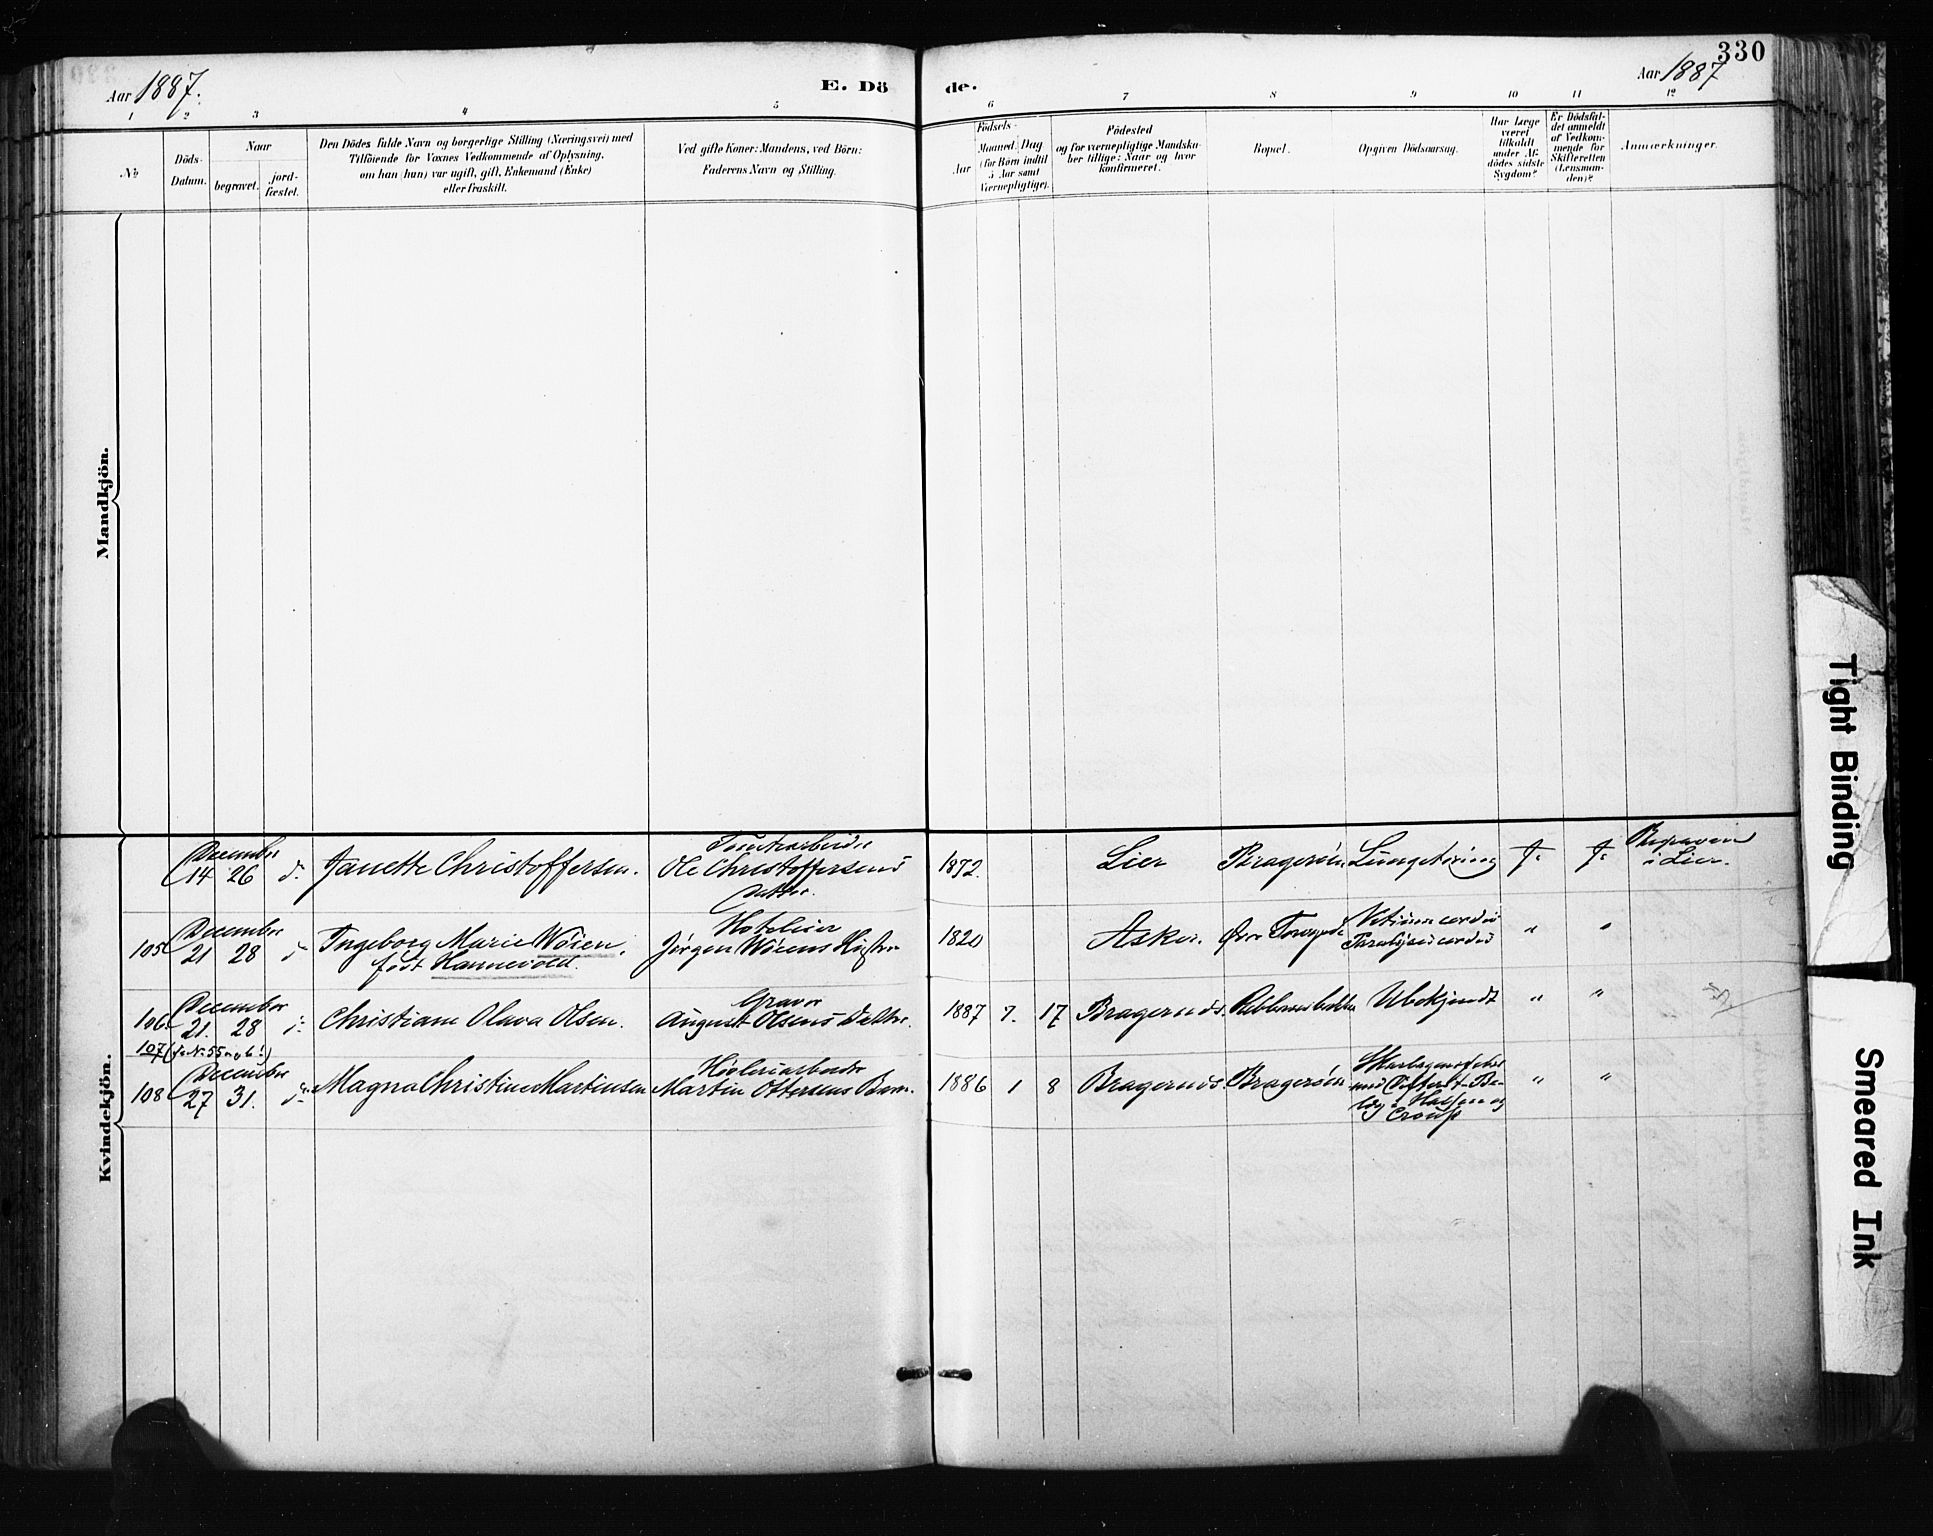 330
Aar 1887.
E. Dö
de.
Aar 1887
1
2
3
4
5
6
7
8
9
10
11
12
No
Döds-
Datum.
Naar
begravet.
jord-
fæstet.
Den Dödes fulde Navn og borgerlige Stilling (Næringsvei) med
Tilföiende for Voxnes Vedkommende af Oplysning,
om han (hun) var ugift, gift, Enkemand (Enke)
eller fraskilt.
Ved gifte Koner: Mandens, ved Börn:
Faderens Navn og Stilling.
Födsels-
Aar
Maaned.
Dag
(for Børn indtil
5 Aar samt
Værnepligtige).
Födested
og for værnepligtige Mandskaber
tillige: Naar og hvor
konfirmeret.
Bopæl.
Opgiven Dödsaarsag.
Har Læge
været
tilkaldt
under Af-
dödes sidste
Sygdom?
Er Dödsfal-
det anmeldt
af Vedkom-
mende for
Skifteretten
(Lensman-
den)?
Anmærkninger.
Mandkjön.
Kvindekjön.
December
14 26 d. Janette Christoffersen. Tomtearbeider
Ole Christoffersens
Datter.
1872. Lier Bragerøen Lungetæring J. J. Begraven
i Lier.
105 December
21 28 Ingeborg Marie Wøien,
født Hannevold.
Hoteleier
Jørgen Wøiens Hustru
1820 Asker. Øvre Vitium cordis
Paralysis cordis " "
106. December
21. 28 Christiane Olava Olsen. Graver
August Olsens Datter.
1887 7. 17 Bragernes. Ubekjendt " "
107 (se No. 55 a og b!)
108 December
27 31. Magna Christine Martinsen Høvleriarbeider
Martin Ottersens Barn.
1886 1 8 Bragernes. Bragerøen Skarlagensfeber
med Difterit-Be-
læg i Halsen og
Croup " "
Tight Binding
Smeared Ink